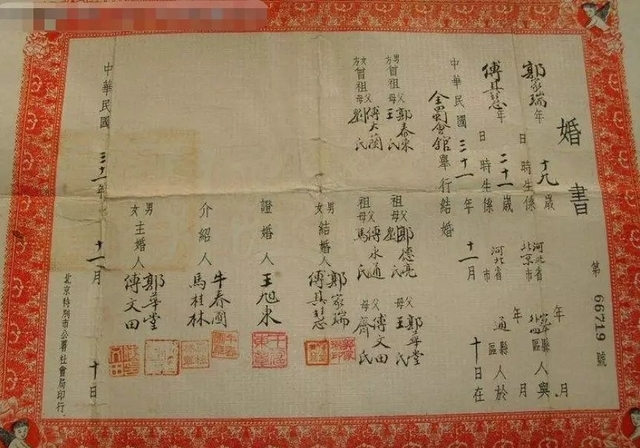 婚書
第66719號
郭家瑞年十九歲 河北省 縣人與 年 月
日 時生係 北京市 區
傅其慧年二十一歲 河北省 通縣人於 年 月
日 時生係 市 區
中華民國三十一年十一月十日在
全蜀會館舉行結婚
男方曾祖父郭泰來 祖父郭德亮 父郭華堂
母王氏 母劉氏 母王氏
女方曾祖父傅大蘭 祖父傅永通 父傅文田
母劉氏 母馬氏 母齊氏
男女結婚人 郭家瑞
傅其慧
證婚人 王旭東
介紹人 牛春圃
馬桂林
男女主婚人 郭華堂
傅文田
中華民國三十一年十一月十日
北京特別市公署社會局印行